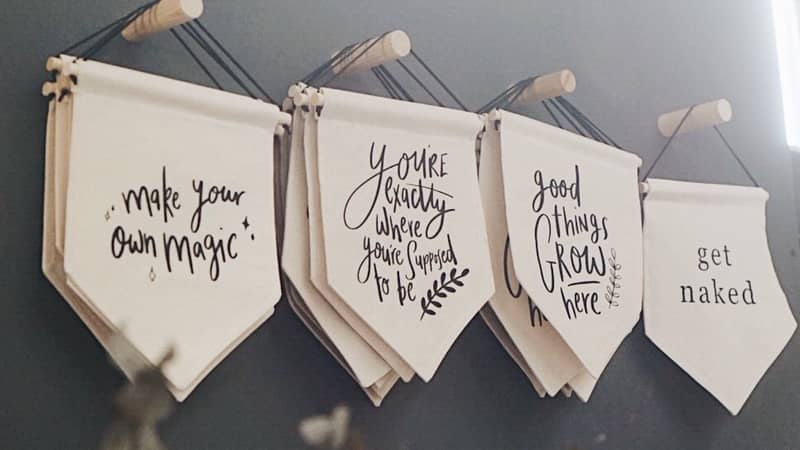 make your
own magic
you're
exactly
where
you're supposed
to be
good
things
grow
here
h
get
naked